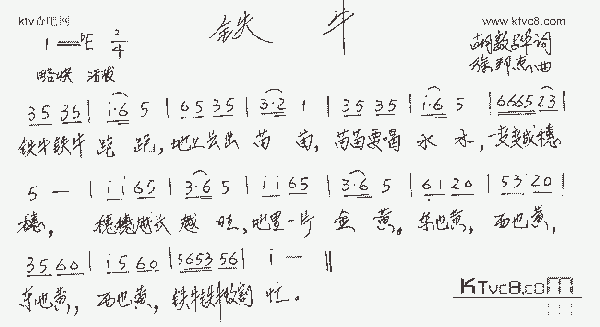 ktv酷吧网
www.ktvc8.com
铁牛
1=♭E 2/4
胡敦骅词
徐邦杰曲
略快 活泼
3 5 3 5 | i·6 5 | 6 5 3 5 | 3·2 1 | 3 5 3 5 | i·6 5 | 6 6 6 5 2 3 |
铁牛铁牛 跑 跑，地上 苗 苗，苗苗要喝 水 水，一变变成穗
5 — | i i 6 5 | 3·6 5 | i i 6 5 | 3·6 5 | 6 1 2 0 | 5 3 2 0 |
穗， 穗穗越长 越 旺，地里一片 金 黄。东也黄， 西也黄，
3 5 6 0 | i 5 6 0 | 5 6 5 3 5 6 | i — ‖
东也黄， 西也黄， 铁牛铁牛收割 忙。
KTvc8.com